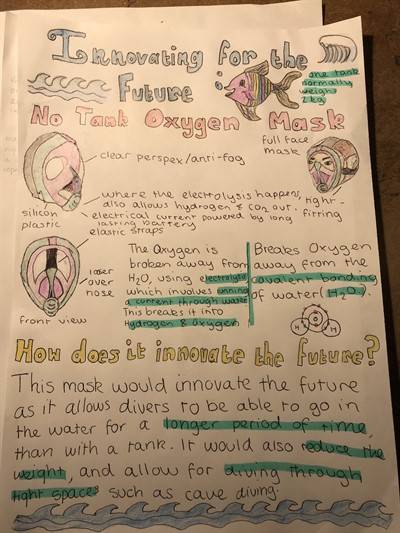 Innovating for the
Future
one tank
normally
weighs
2 kg
No Tank Oxygen Mask
clear perspex/anti-fog
full face
mask
where the electrolysis happens,
also allows hydrogen & CO2 out.
electrical current powered by long
lasting battery
tight-
fitting
silicon
plastic
elastic straps
layer
over
nose
front view
The Oxygen is
broken away from
H2O, using electrolysis
which involves running
a current through water
This breaks it into
Hydrogen & Oxygen
Breaks Oxygen
away from the
covalent bonding
of water (H2O).
H O H
How does it innovate the future?
This mask would innovate the future
as it allows divers to be able to go in
the water for a longer period of time,
than with a tank. It would also reduce the
weight, and allow for diving through
tight spaces such as cave diving.